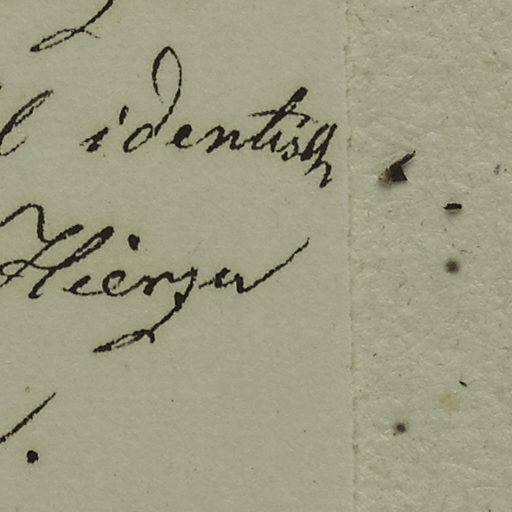 identisch
Hierzu